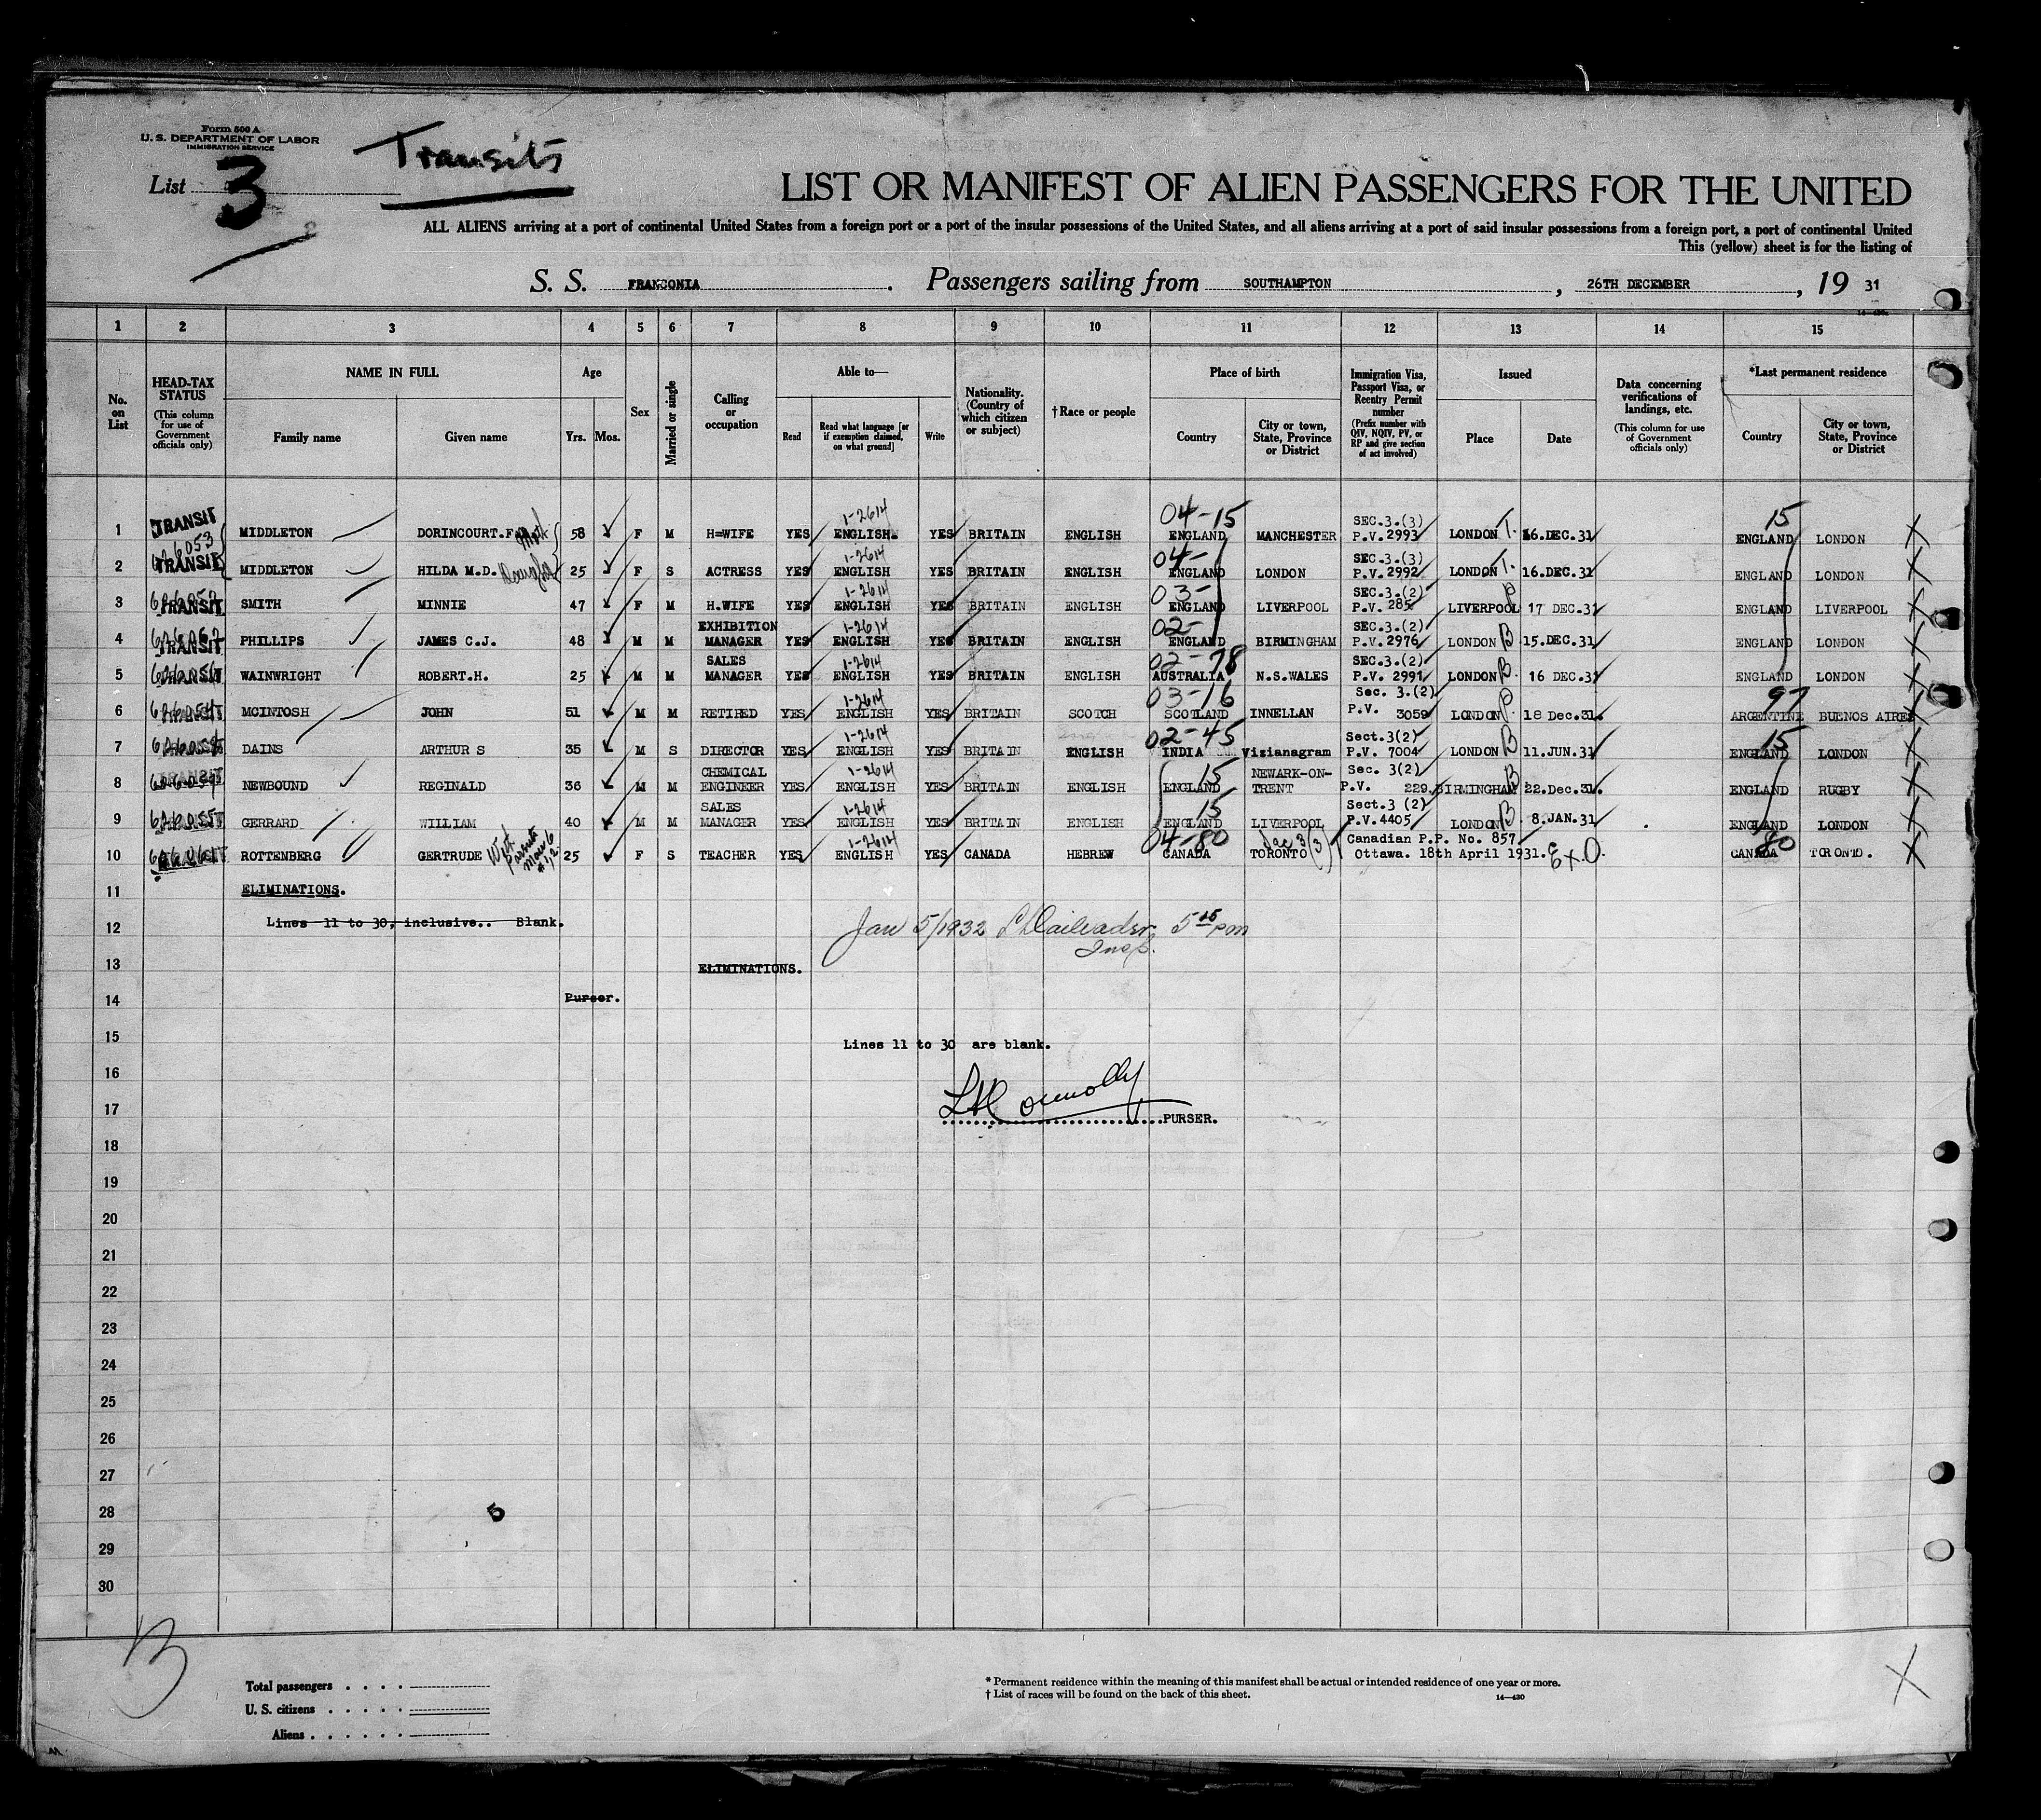 Form 500 A
U. S. DEPARTMENT OF LABOR
IMMIGRATION SERVICE
Transits
List 3
LIST OR MANIFEST OF ALIEN PASSENGERS FOR THE UNITED
ALL ALIENS arriving at a port of continental United States from a foreign port or a port of the insular possessions of the United States, and all aliens arriving at a port of said insular possessions from a foreign port, a port of continental United
This (yellow) sheet is for the listing of
S. S. FRANCONIA. Passengers sailing from SOUTHAMPTON, 26TH DECEMBER, 19 31
14-430a
1 2 3 4 5 6 7 8 9 10 11 12 13 14 15
No. on List
HEAD-TAX STATUS (This column for use of Government officials only)
NAME IN FULL Family name Given name
Age Yrs. Mos.
Sex
Married or single
Calling or occupation
Able to— Read Read what language [or if exemption claimed, on what ground] Write
Nationality. (Country of which citizen or subject)
†Race or people
Place of birth Country City or town, State, Province or District
Immigration Visa, Passport Visa, or Reentry Permit number (Prefix number with QIV, NQIV, PV, or RP and give section of act involved)
Issued Place Date
Data concerning verifications of landings, etc. (This column for use of Government officials only)
*Last permanent residence Country City or town, State, Province or District
1 TRANSIT MIDDLETON DORINCOURT.F. 58 F M H=WIFE YES 1-2614 ENGLISH. YES BRITAIN ENGLISH 04-15 ENGLAND MANCHESTER SEC.3.(3) P.V. 2993 LONDON T. 16.DEC.31 15 ENGLAND LONDON X
053
2 TRANSIT MIDDLETON HILDA M.D. 25 F S ACTRESS YES 1-2614 ENGLISH YES BRITAIN ENGLISH 04- ENGLAND LONDON SEC.3.(3) P.V. 2992 LONDON T. 16.DEC.31 ENGLAND LONDON X
3 TRANSIT SMITH MINNIE 47 F M H.WIFE YES 1-2614 ENGLISH YES BRITAIN ENGLISH 03- ENGLAND LIVERPOOL SEC.3.(2) P.V. 285 LIVERPOOL P 17 DEC.31 ENGLAND LIVERPOOL X
4 TRANSIT PHILLIPS JAMES C.J. 48 M M EXHIBITION MANAGER YES 1-2614 ENGLISH YES BRITAIN ENGLISH 02- ENGLAND BIRMINGHAM SEC.3.(2) P.V. 2976 LONDON B 15.DEC.31 ENGLAND LONDON X
5 TRANSIT WAINWRIGHT ROBERT.H. 25 M M SALES MANAGER YES 1-2614 ENGLISH YES BRITAIN ENGLISH 02-78 AUSTRALIA N.S.WALES SEC.3.(2) P.V. 2991 LONDON B. 16 DEC.31 ENGLAND LONDON X
6 TRANSIT MCINTOSH JOHN 51 M M RETIRED YES 1-2614 ENGLISH YES BRITAIN SCOTCH 03-16 SCOTLAND INNELLAN Sec. 3.(2) P.V. 3059 LONDON P. 18 Dec.31. 97 ARGENTINE BUENOS AIRES X
7 TRANSIT DAINS ARTHUR S 35 M S DIRECTOR YES 1-2614 ENGLISH YES BRITAIN ENGLISH 02-45 INDIA Vizianagram Sect.3(2) P.V. 7004 LONDON B 11.JUN.31 15 ENGLAND LONDON X
8 TRANSIT NEWBOUND REGINALD 36 M M CHEMICAL ENGINEER YES 1-2614 ENGLISH YES BRITAIN ENGLISH 15 ENGLAND NEWARK-ON-TRENT Sec. 3(2) P.V. 229. BIRMINGHAM B 22.Dec.31. ENGLAND RUGBY X
9 TRANSIT GERRARD WILLIAM 40 M M SALES MANAGER YES 1-2614 ENGLISH YES BRITAIN ENGLISH 15 ENGLAND LIVERPOOL Sect.3 (2) P.V.4405 LONDON B 8.JAN.31 ENGLAND LONDON X
10 TRANSIT ROTTENBERG GERTRUDE 25 F S TEACHER YES 1-2614 ENGLISH YES CANADA HEBREW 04-80 CANADA TORONTO Sec 3 (3) Canadian P.P. No. 857 Ottawa. 18th April 1931. Ex.O. 80 CANADA TORONTO. X
11 ELIMINATIONS.
12 Lines 11 to 30, inclusive.. Blank. Jan 5/1932 5 15 pm
Insp.
13 ELIMINATIONS.
14 Purser.
15 Lines 11 to 30 are blank.
16
17 PURSER.
18
19
20
21
22
23
24
25
26
27
28 5
29
30
Total passengers
U. S. citizens
Aliens
* Permanent residence within the meaning of this manifest shall be actual or intended residence of one year or more.
† List of races will be found on the back of this sheet.
14—430
X